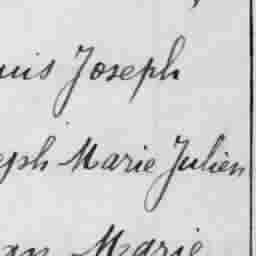 uis Joseph
eph Marie Julien
an Marie